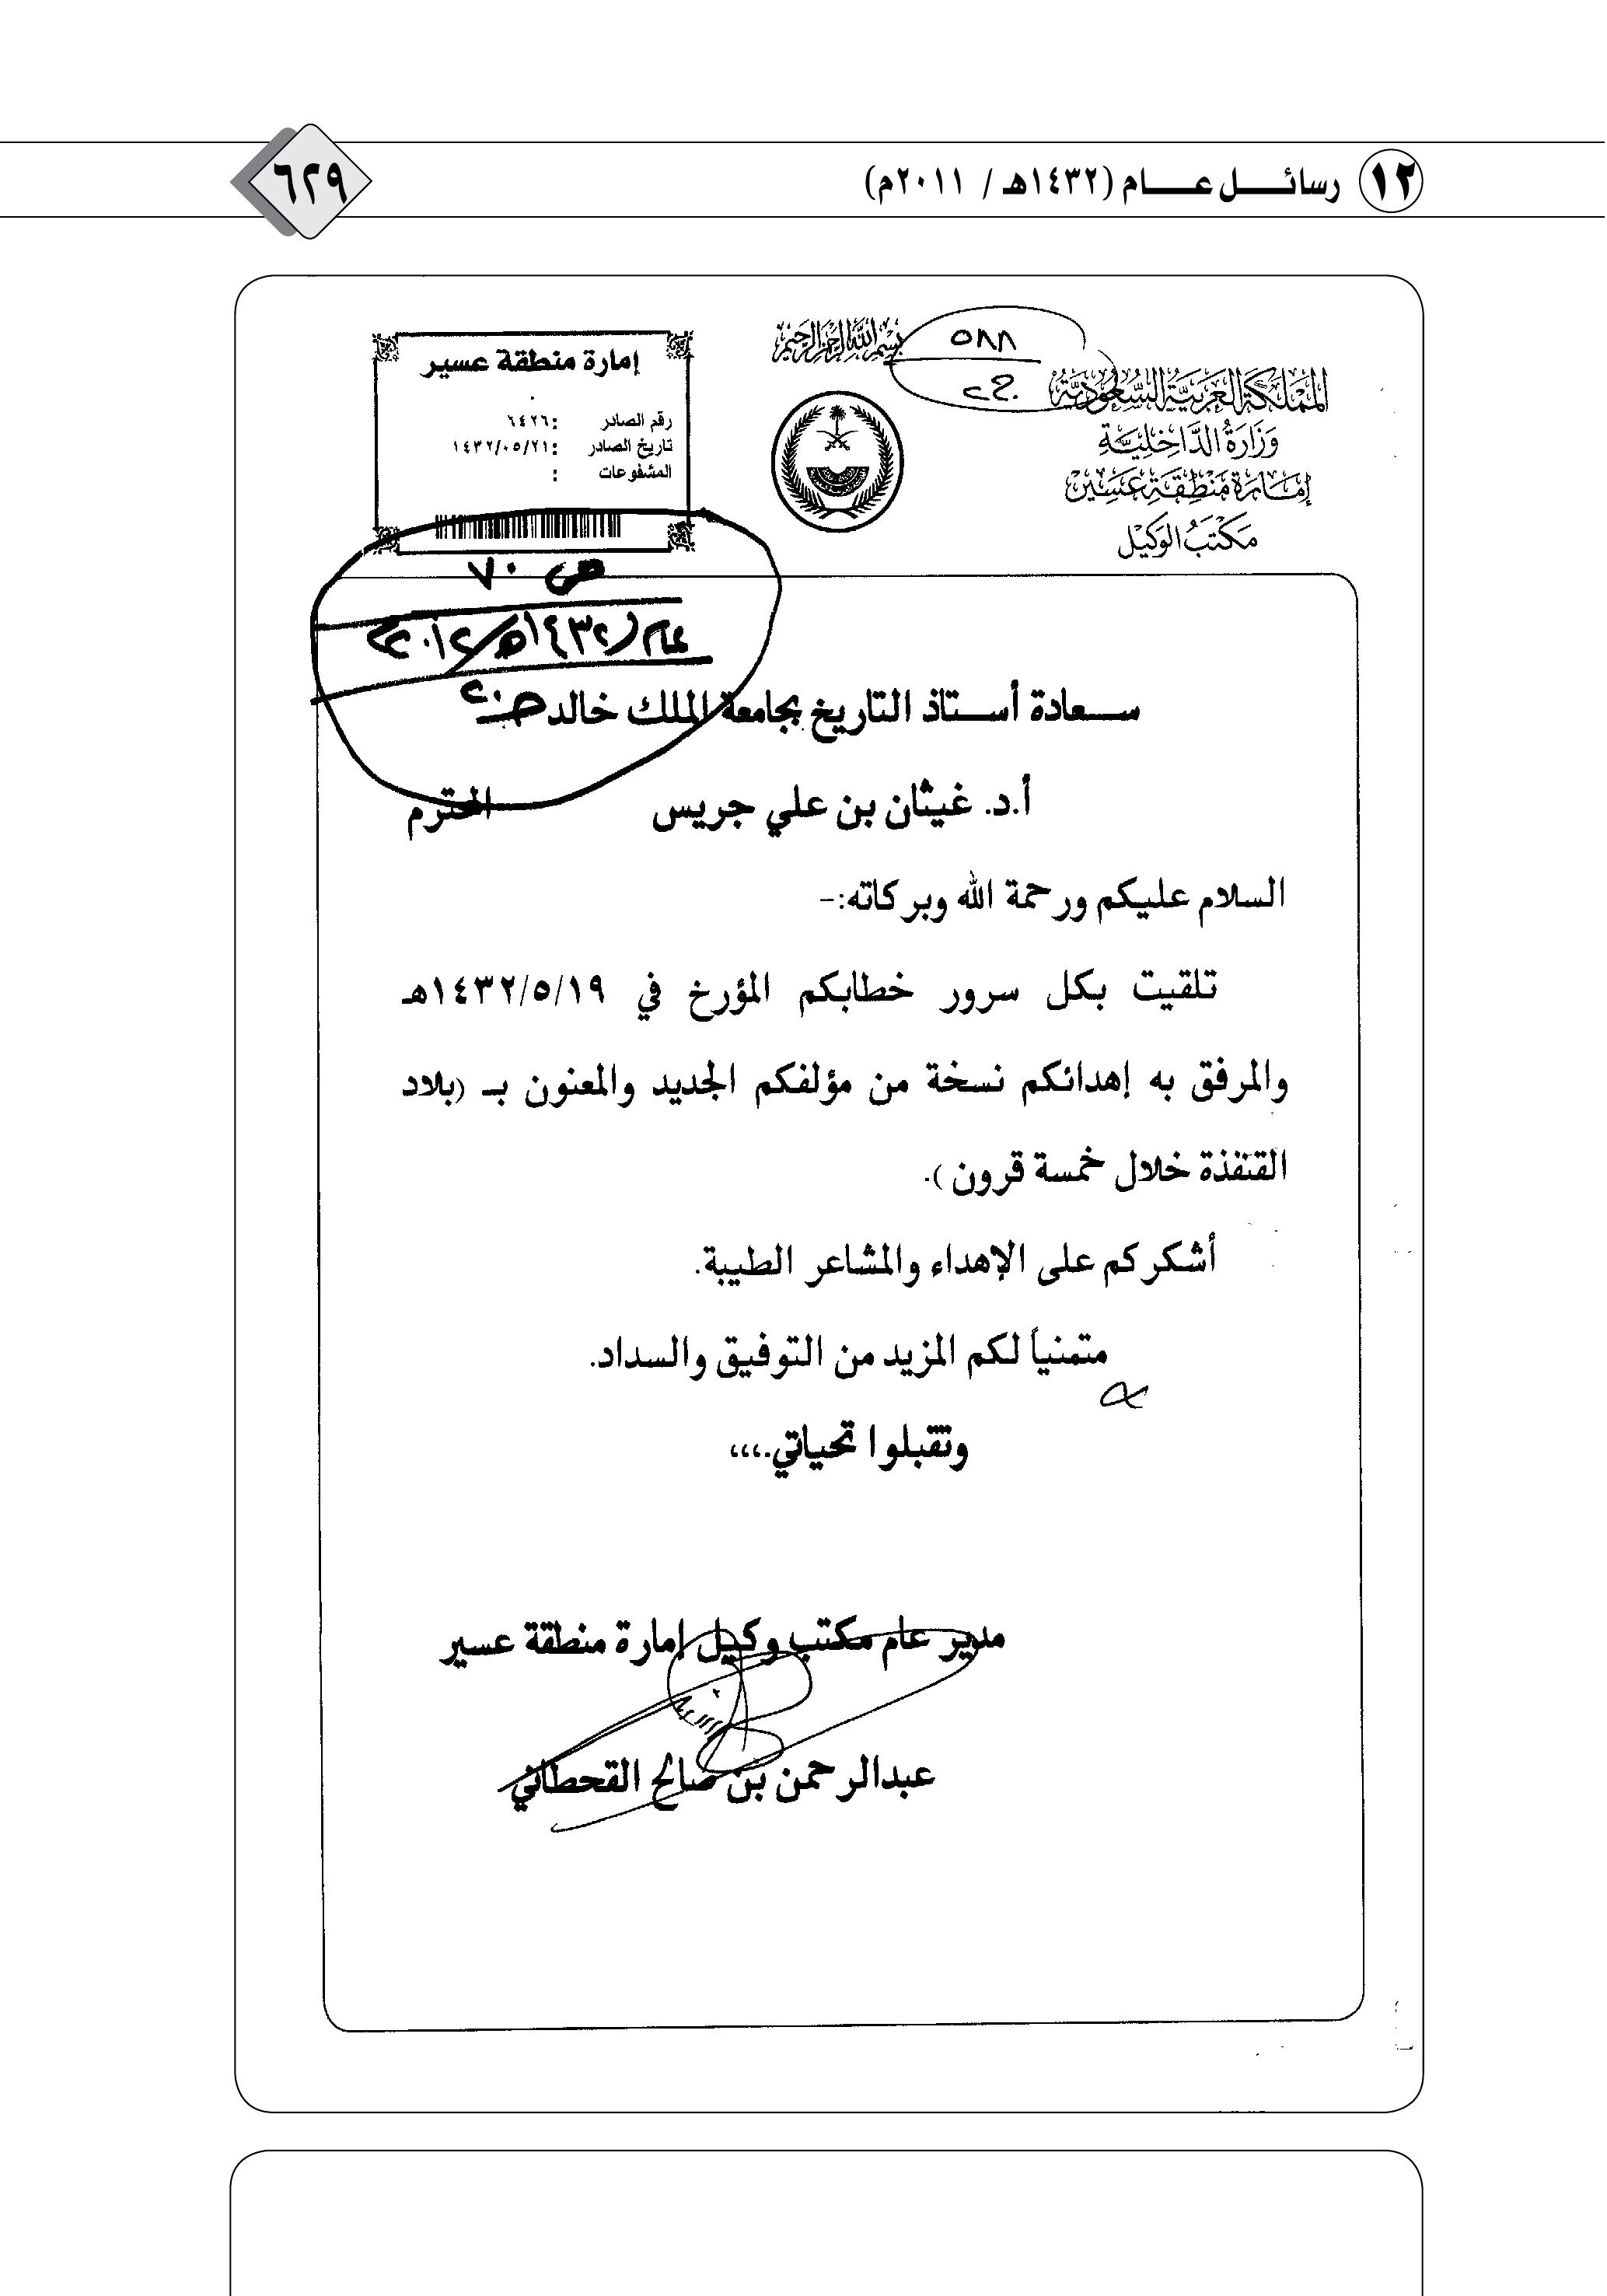 ١٢ رسائل عام (١٤٣٢هـ / ٢٠١١م)
٦٢٩
بسم الله الرحمن الرحيم
٥٨٨
المملكة العربية السعودية
وزارة الداخلية
إمارة منطقة عسير
مكتب الوكيل
إمارة منطقة عسير
رقم الصادر : ٦٤٢٦
تاريخ الصادر : ١٤٣٢/٠٥/٢١
المشفوعات :
ص ٧٠
عام ١٤٣٢هـ/٢٠١٢م
سعادة أستاذ التاريخ بجامعة الملك خالد
أ.د. غيثان بن علي جريس المحترم
السلام عليكم ورحمة الله وبركاته:-
تلقيت بكل سرور خطابكم المؤرخ في ١٤٣٢/٥/١٩هـ
والمرفق به إهدائكم نسخة من مؤلفكم الجديد والمعنون بـ (بلاد
القنفذة خلال خمسة قرون ).
أشكركم على الإهداء والمشاعر الطيبة.
متمنياً لكم المزيد من التوفيق والسداد.
وتقبلوا تحياتي.،،،
مدير عام مكتب وكيل إمارة منطقة عسير
عبدالرحمن بن صالح القحطاني